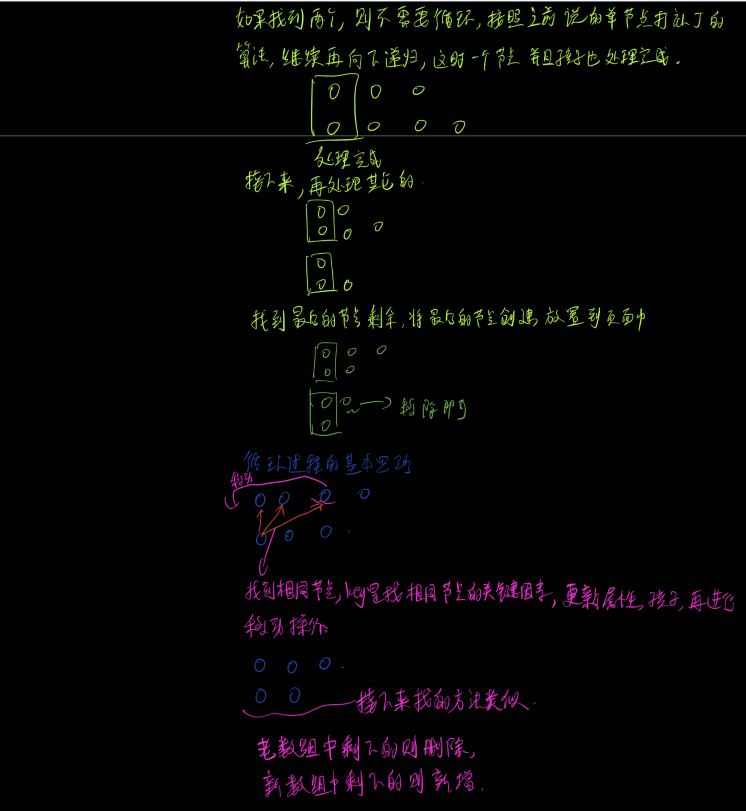 如果找到两个, 则不需要循环, 按照之前说的单节点打补丁的
算法, 继续再向下递归, 这时一个节点 并且孩子也处理完成.
处理完成
接下来, 再处理其它的.
找到最后的节点剩余, 将最后的节点创建, 放置到页面中
移除即可
循环过程的基本思路
移动
找到相同节点, key是找相同节点的关键因素, 更新属性, 孩子, 再进行
移动操作.
接下来找的方法类似.
老数组中剩下的则删除,
新数组中剩下的则新增.